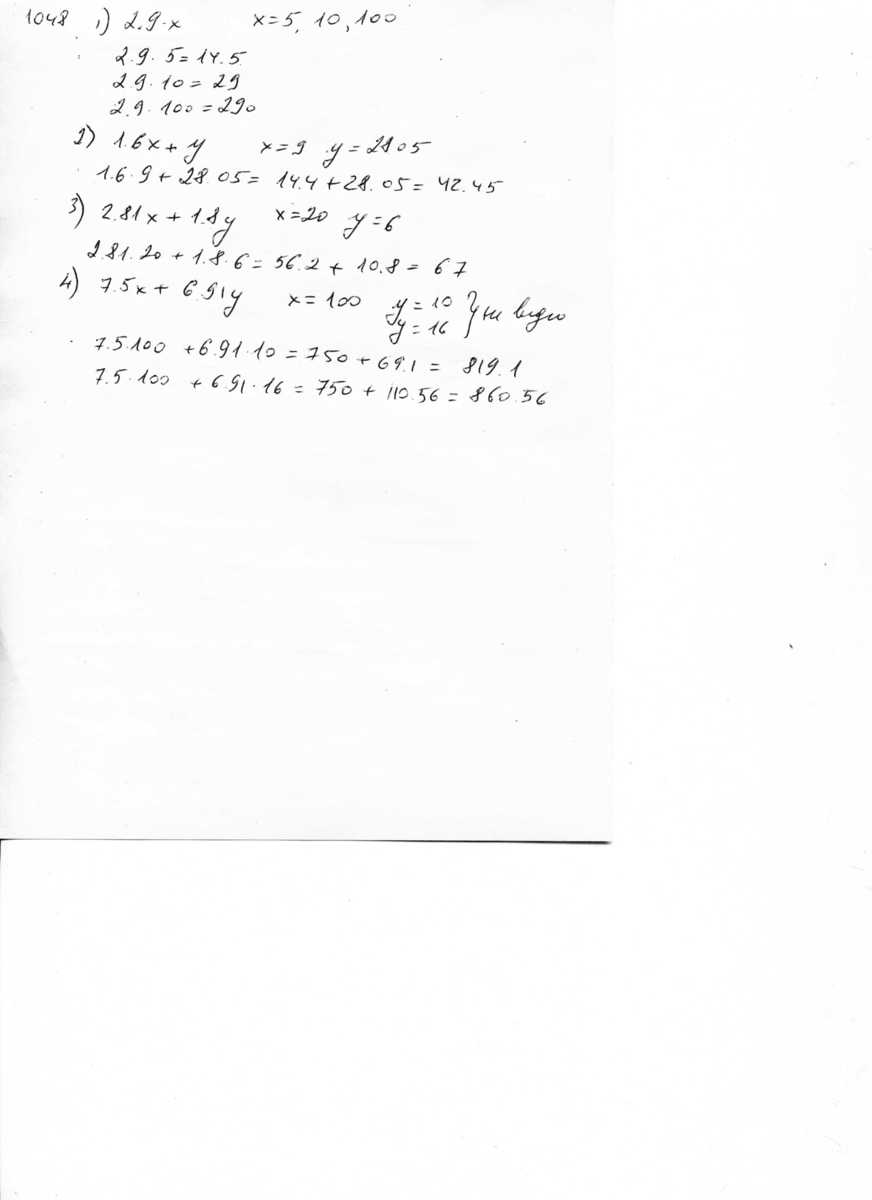 1048 1) 2.9·x x=5, 10, 100
2.9·5=14.5
2.9·10=29
2.9·100=290
2) 1.6x+y x=9 y=2805
1.6·9+28.05=14.4+28.05=42.45
3) 2.81x+1.8y x=20 y=6
2.81·20+1.8·6=56.2+10.8=67
4) 7.5x+6.91y x=100 y=10
y=16 } не видно
7.5·100+6.91·10=750+69.1=819.1
7.5·100+6.91·16=750+110.56=860.56